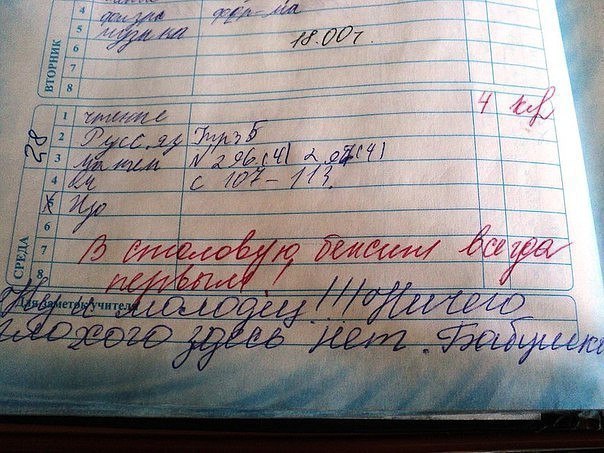 4 физра форма
5 музыка 18.00ч.
6
7
8
ВТОРНИК
28
1 чтение 4 кф
2 Русс.яз Упр 5
3 матем N 296.(4) 297(4)
4 с 107-113
5 Изо
6
7 В столовую бежит всегда
8 первым!
СРЕДА
Для заметок учителя
Ну и молодец!!! Ничего
плохого здесь нет. Бабушка